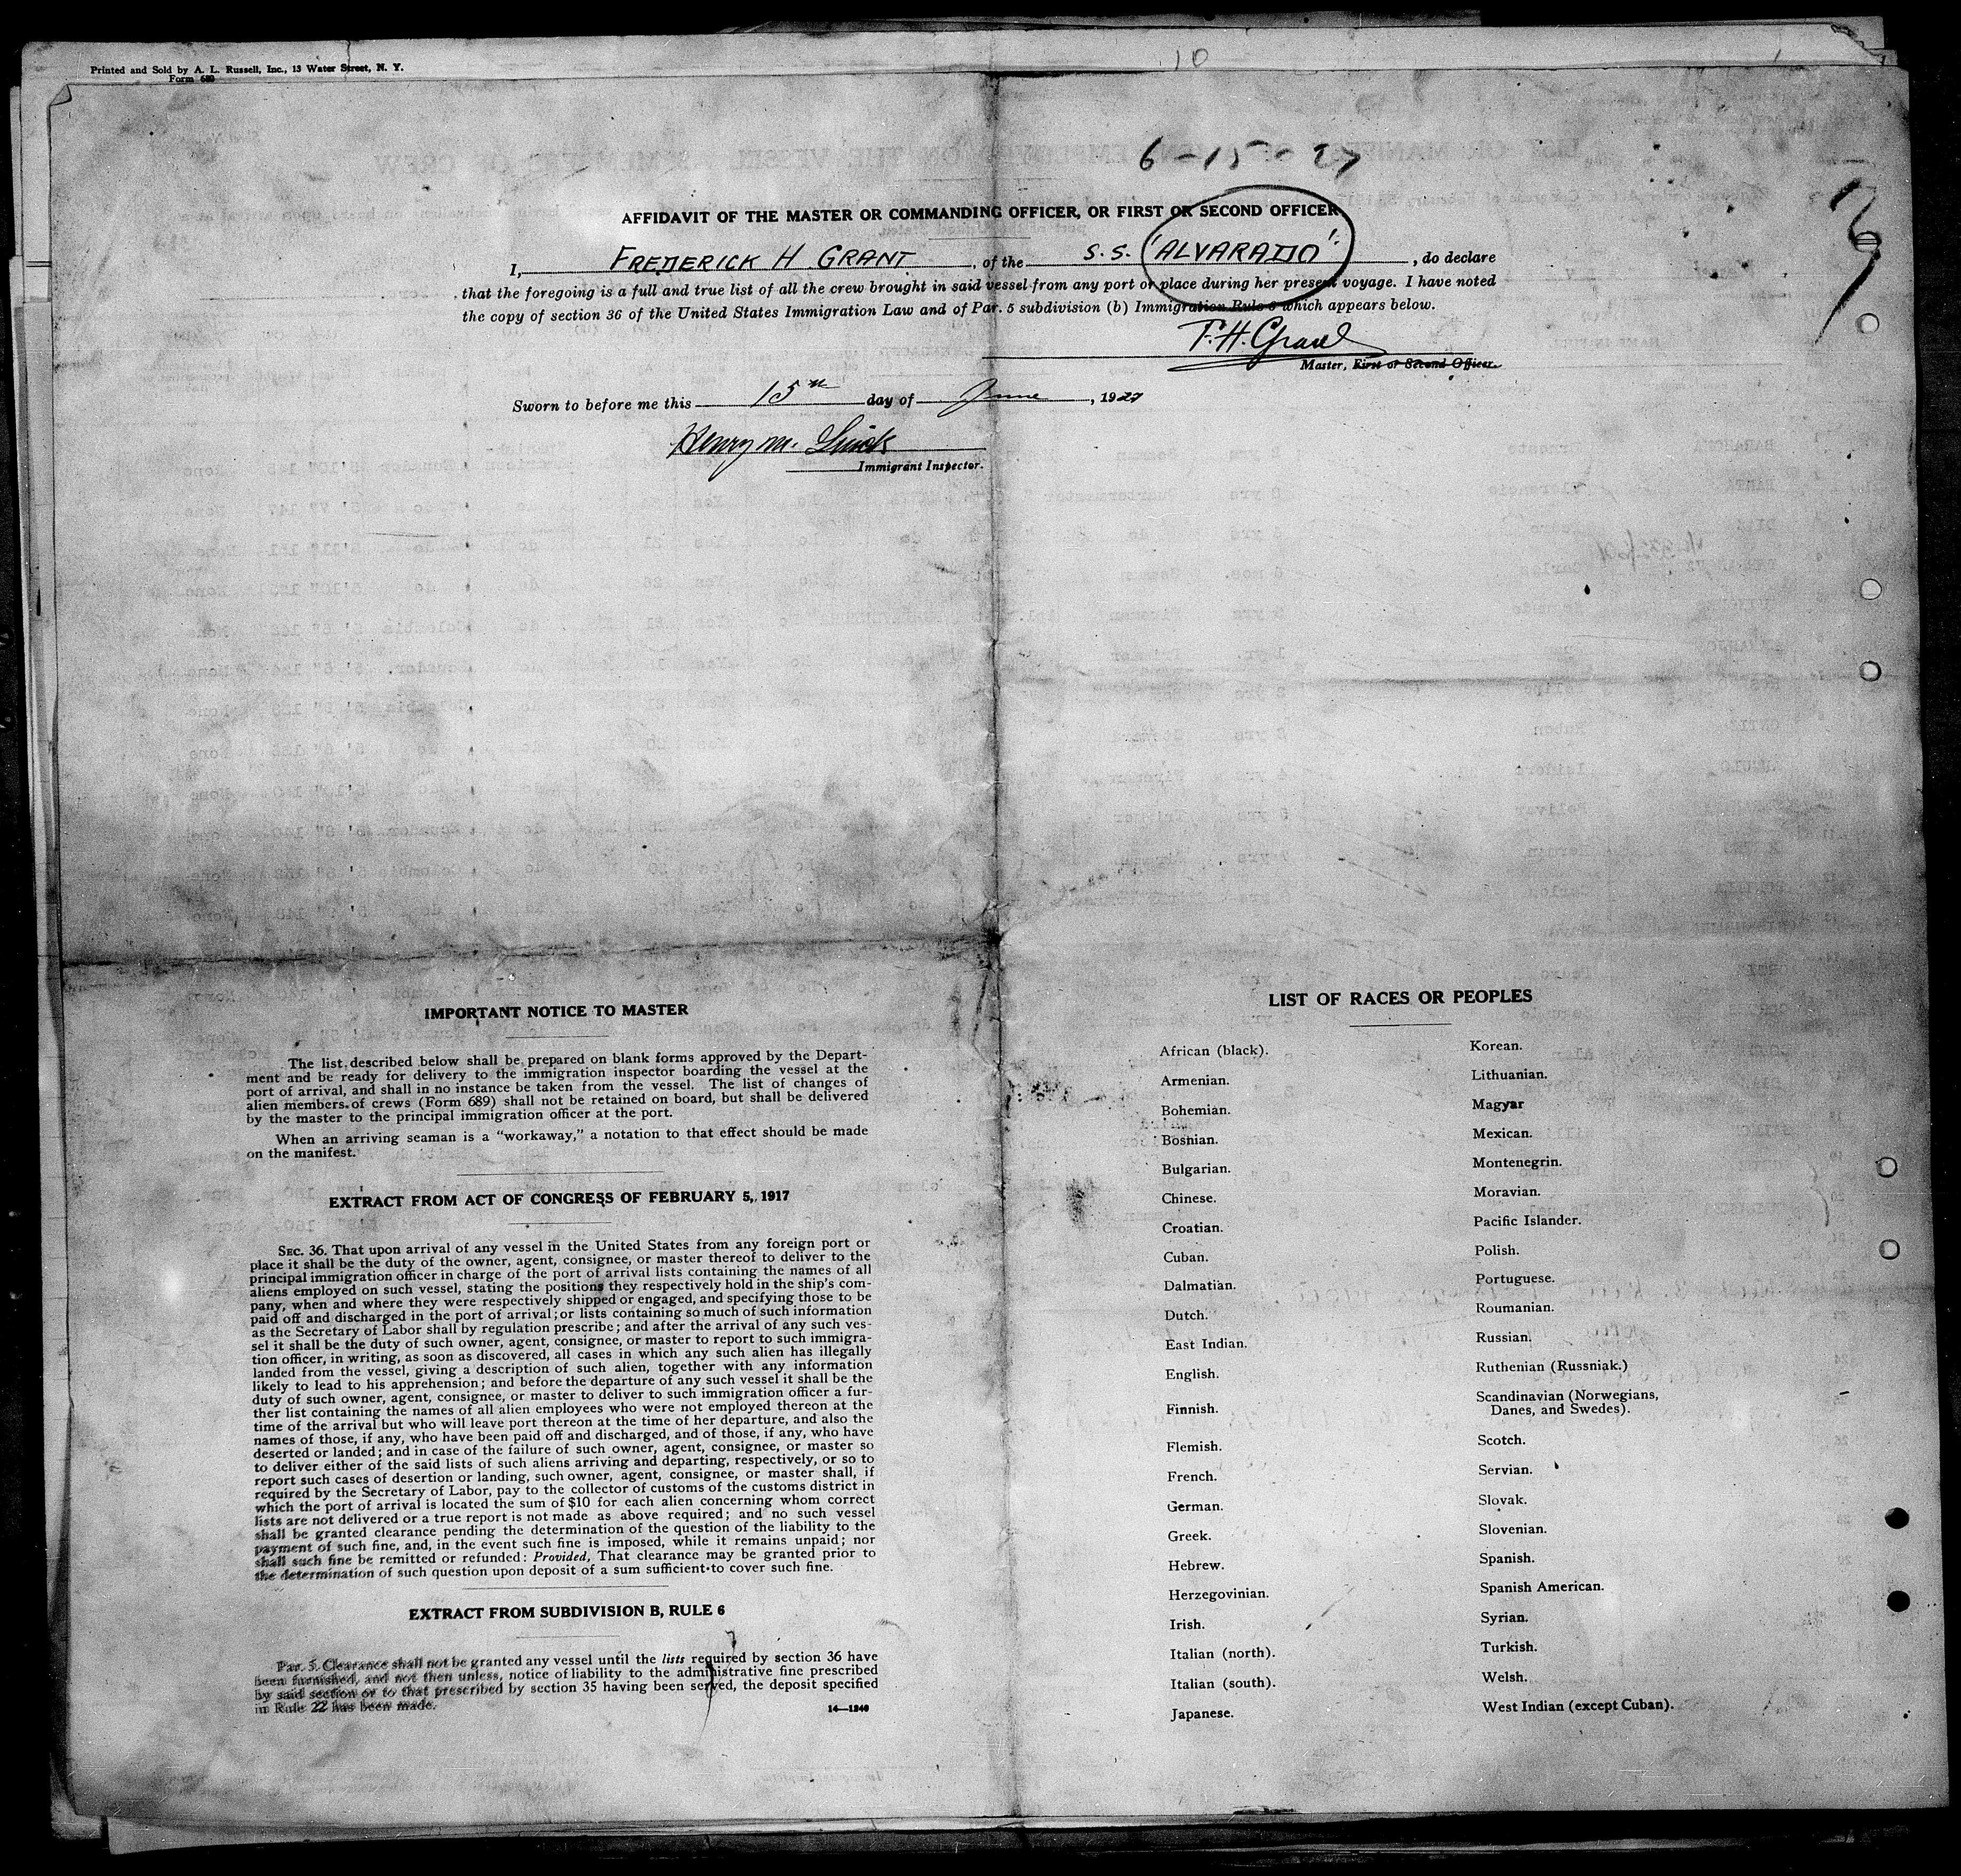 Printed and Sold by A. L. Russell, Inc., 13 Water Street, N. Y.
Form 689
10
6-15-27
AFFIDAVIT OF THE MASTER OR COMMANDING OFFICER, OR FIRST OR SECOND OFFICER
I, FREDERICK H GRANT, of the S.S. "ALVARADO", do declare
that the foregoing is a full and true list of all the crew brought in said vessel from any port or place during her present voyage. I have noted
the copy of section 36 of the United States Immigration Law and of Par. 5 subdivision (b) Immigration Rule 6 which appears below.
F.H. Grant
Master, First or Second Officer.
Sworn to before me this 15th day of June, 1927
Henry M.
Immigrant Inspector.
IMPORTANT NOTICE TO MASTER
The list described below shall be prepared on blank forms approved by the Depart-
ment and be ready for delivery to the immigration inspector boarding the vessel at the
port of arrival, and shall in no instance be taken from the vessel. The list of changes of
alien members of crews (Form 689) shall not be retained on board, but shall be delivered
by the master to the principal immigration officer at the port.
When an arriving seaman is a "workaway," a notation to that effect should be made
on the manifest.
EXTRACT FROM ACT OF CONGRESS OF FEBRUARY 5, 1917
SEC. 36. That upon arrival of any vessel in the United States from any foreign port or
place it shall be the duty of the owner, agent, consignee, or master thereof to deliver to the
principal immigration officer in charge of the port of arrival lists containing the names of all
aliens employed on such vessel, stating the positions they respectively hold in the ship's com-
pany, when and where they were respectively shipped or engaged, and specifying those to be
paid off and discharged in the port of arrival; or lists containing so much of such information
as the Secretary of Labor shall by regulation prescribe; and after the arrival of any such ves-
sel it shall be the duty of such owner, agent, consignee, or master to report to such immigra-
tion officer, in writing, as soon as discovered, all cases in which any such alien has illegally
landed from the vessel, giving a description of such alien, together with any information
likely to lead to his apprehension; and before the departure of any such vessel it shall be the
duty of such owner, agent, consignee, or master to deliver to such immigration officer a fur-
ther list containing the names of all alien employees who were not employed thereon at the
time of the arrival but who will leave port thereon at the time of her departure, and also the
names of those, if any, who have been paid off and discharged, and of those, if any, who have
deserted or landed; and in case of the failure of such owner, agent, consignee, or master so
to deliver either of the said lists of such aliens arriving and departing, respectively, or so to
report such cases of desertion or landing, such owner, agent, consignee, or master shall, if
required by the Secretary of Labor, pay to the collector of customs of the customs district in
which the port of arrival is located the sum of $10 for each alien concerning whom correct
lists are not delivered or a true report is not made as above required; and no such vessel
shall be granted clearance pending the determination of the question of the liability to the
payment of such fine, and, in the event such fine is imposed, while it remains unpaid; nor
shall such fine be remitted or refunded: Provided, That clearance may be granted prior to
the determination of such question upon deposit of a sum sufficient to cover such fine.
EXTRACT FROM SUBDIVISION B, RULE 6
Par. 5. Clearance shall not be granted any vessel until the lists required by section 36 have
been furnished, and not then unless, notice of liability to the administrative fine prescribed
by said section or to that prescribed by section 35 having been served, the deposit specified
in Rule 22 has been made.
14—1240
LIST OF RACES OR PEOPLES
African (black).
Armenian.
Bohemian.
Bosnian.
Bulgarian.
Chinese.
Croatian.
Cuban.
Dalmatian.
Dutch.
East Indian.
English.
Finnish.
Flemish.
French.
German.
Greek.
Hebrew.
Herzegovinian.
Irish.
Italian (north).
Italian (south).
Japanese.
Korean.
Lithuanian.
Magyar
Mexican.
Montenegrin.
Moravian.
Pacific Islander.
Polish.
Portuguese.
Roumanian.
Russian.
Ruthenian (Russniak.)
Scandinavian (Norwegians,
Danes, and Swedes).
Scotch.
Servian.
Slovak.
Slovenian.
Spanish.
Spanish American.
Syrian.
Turkish.
Welsh.
West Indian (except Cuban).